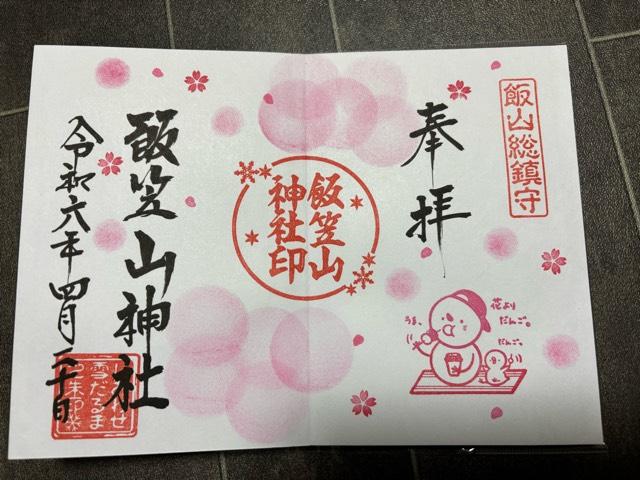 飯山総鎮守
奉拝
花より
だんご。
だんご。
うま、
飯笠山
神社印
飯笠山神社
令和六年四月二十日
雪だるま